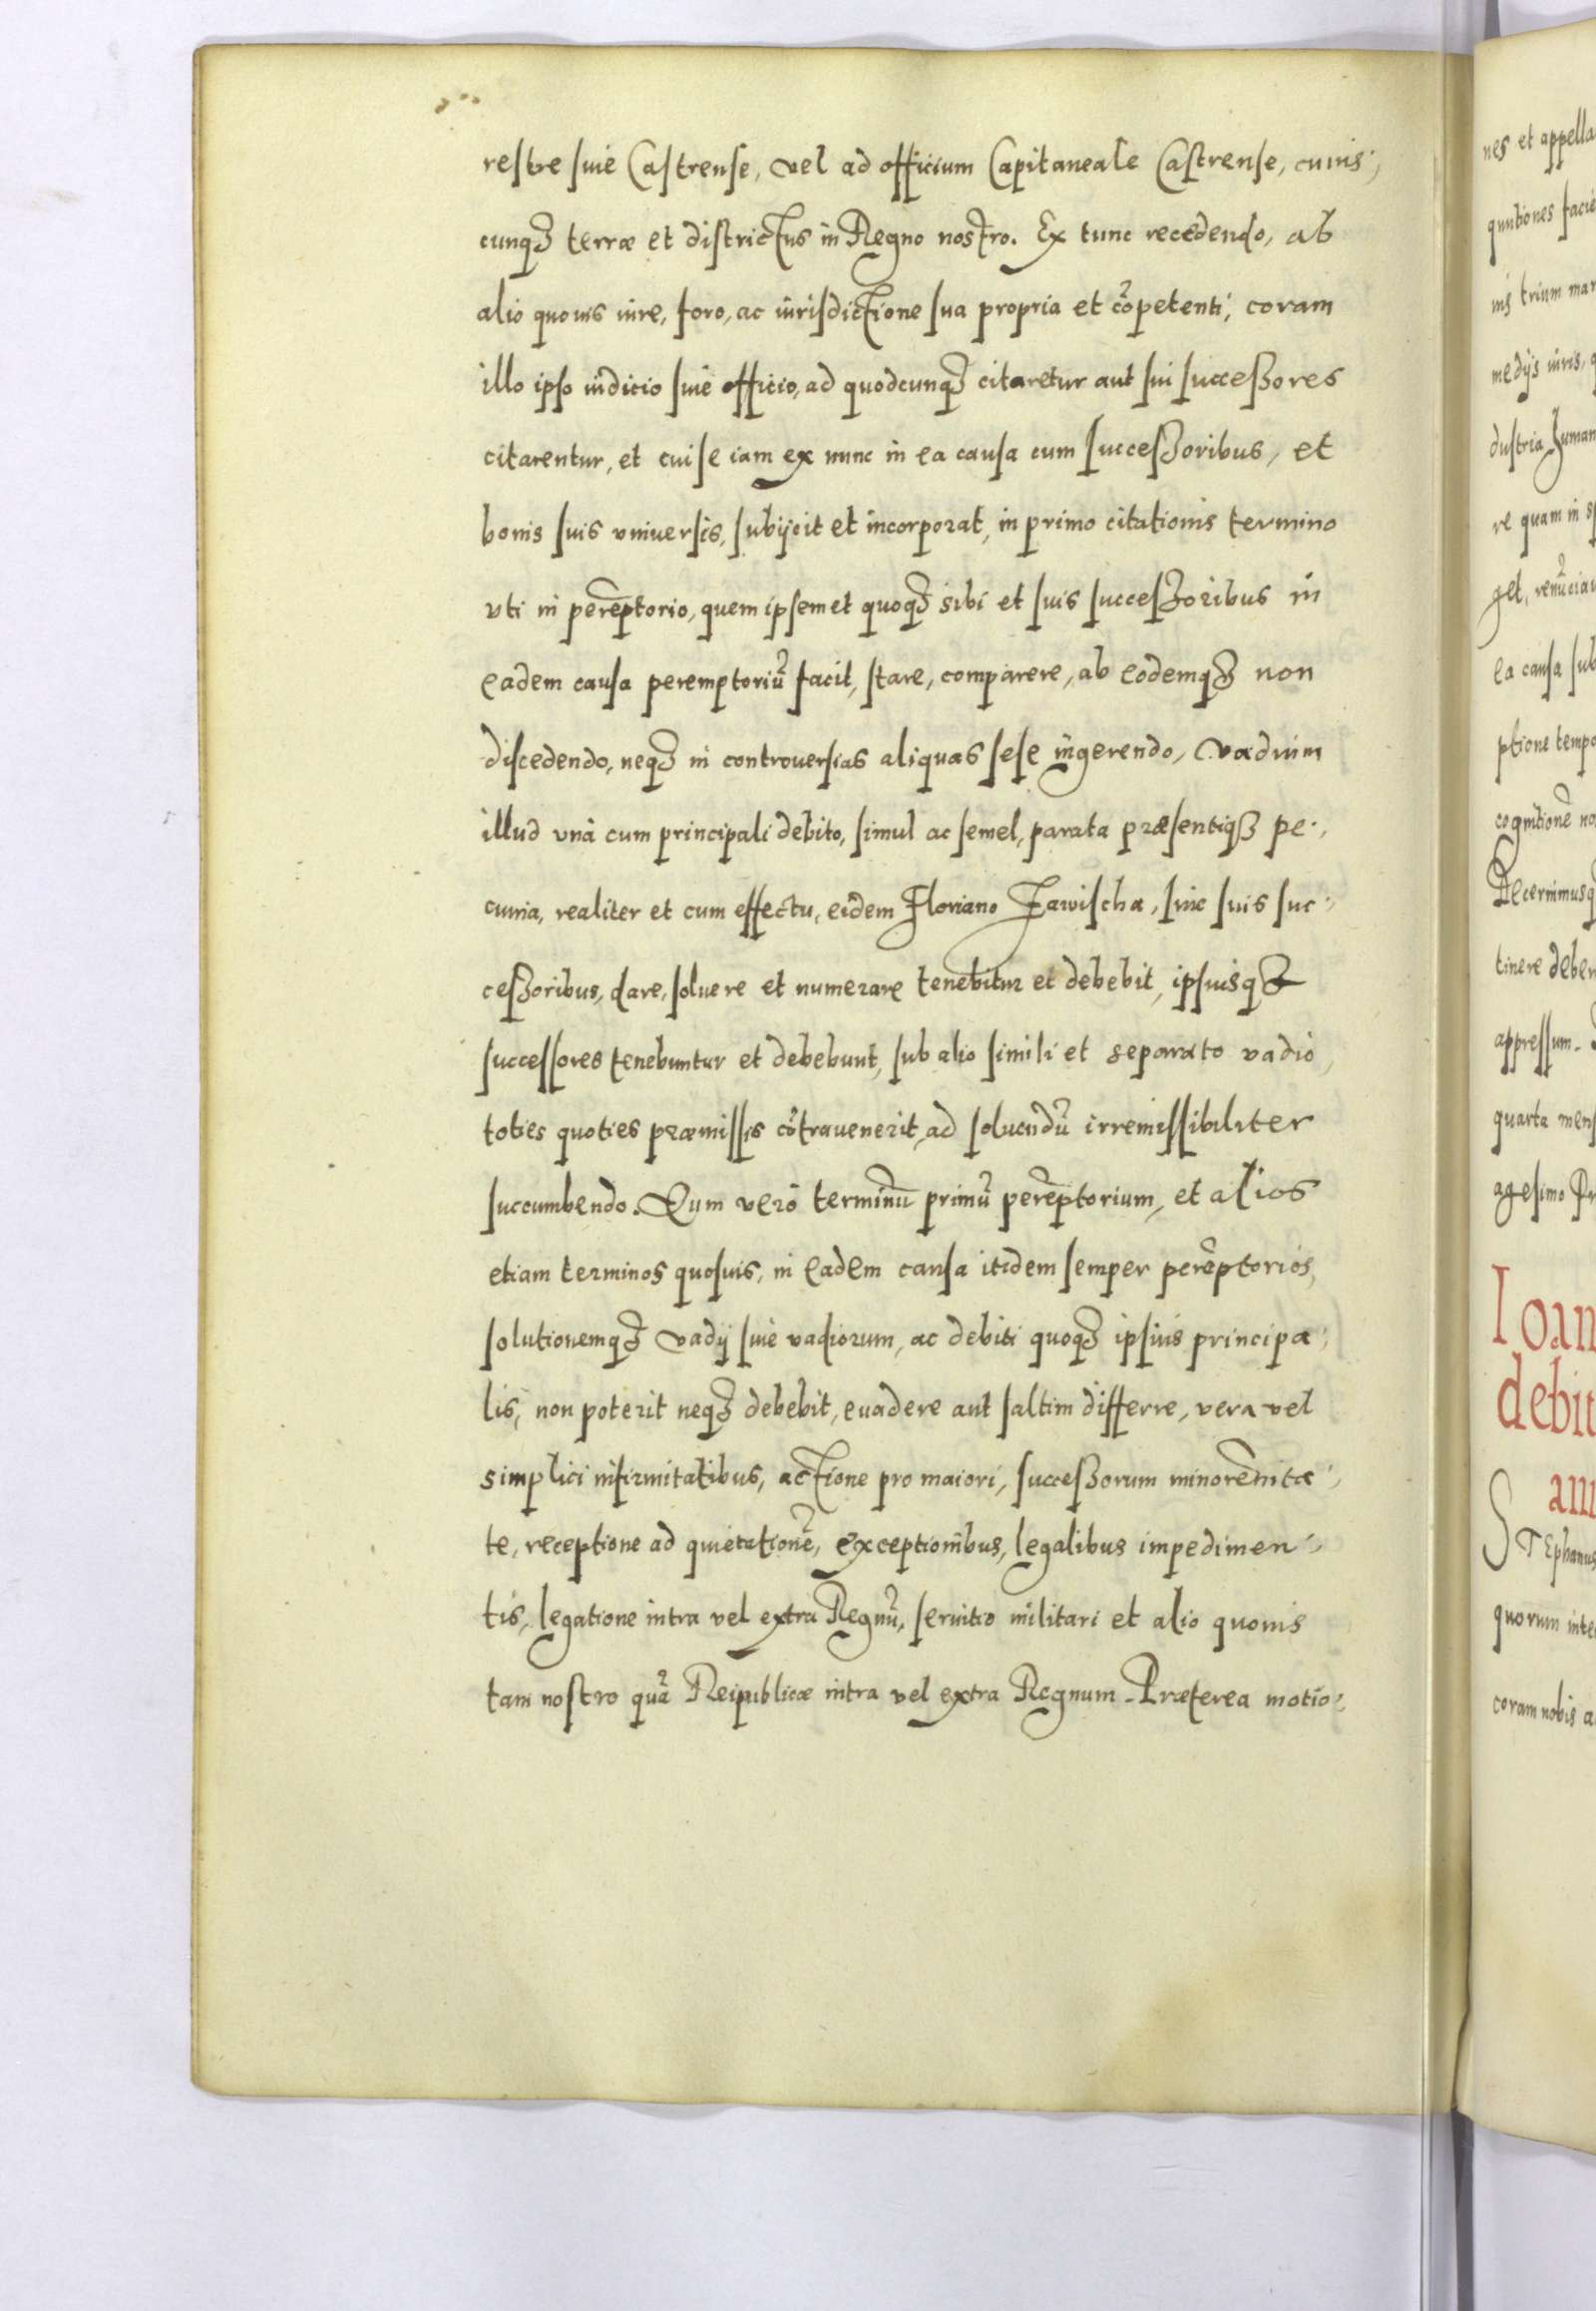 restre siue Castrense, vel ad officium Capitaneale Castrense, cuius-
cunqȝ terræ et districtus in Regno nostro. Ex tunc recedendo, ab
alio quouis iure, foro, ac iurisdictione sua propria et cõpetenti, coram
illo ipso iudicio siue officio, ad quodcunqȝ citaretur aut sui successores
citarentur, et cui se iam ex nunc in ea causa cum successoribus, et
bonis suis vniuersis, subijcit et incorporat, in primo citationis termino
vti in perẽptorio, quem ipsemet quoqȝ sibi et suis successoribus in
eadem causa peremptoriũ facit, stare, comparere, ab eodemqȝ non
discedendo, neqȝ in controuersias aliquas sese ingerendo, vadium
illud vnà cum principali debito, simul ac semel, parata præsentiqȝ pe-
cunia, realiter et cum effectu, eidem Floriano Zawischa, siue suis suc-
cessoribus, dare, soluere et numerare tenebitur et debebit, ipsiusqȝ
successores tenebuntur et debebunt, sub alio simili et separato vadio,
toties quoties præmissis cõtrauenerit, ad soluendũ irremissibiliter
succumbendo. Quem verò terminũ primũ perẽptorium, et alios
etiam terminos quosuis, in eadem causa itidem semper perẽptorios,
solutionemqȝ vadij siue vadiorum, ac debiti quoqȝ ipsius principa-
lis, non poterit neqȝ debebit, euadere aut saltim differre, vera vel
simplici infirmitatibus, actione pro maiori, successorum minorẽnita-
te, receptione ad quietationẽ, exceptionibus, legalibus impedimen-
tis, legatione intra vel extra Regnũ, seruitio militari et alio quouis
tam nostro quã Reipublicæ intra vel extra Regnum. Præterea motio-
nes et appella
quutiones facie
nis trium mar
medijs iuris,
dustria human
re quam in
get, renũciau
ea causa sub
ptione tempo
cognitionẽ no
Decernimusq
tinere deben
appressum.
quarta mens
agesimo
Ioan
debit
ann
STEphanus
quorum inte
coram nobis a